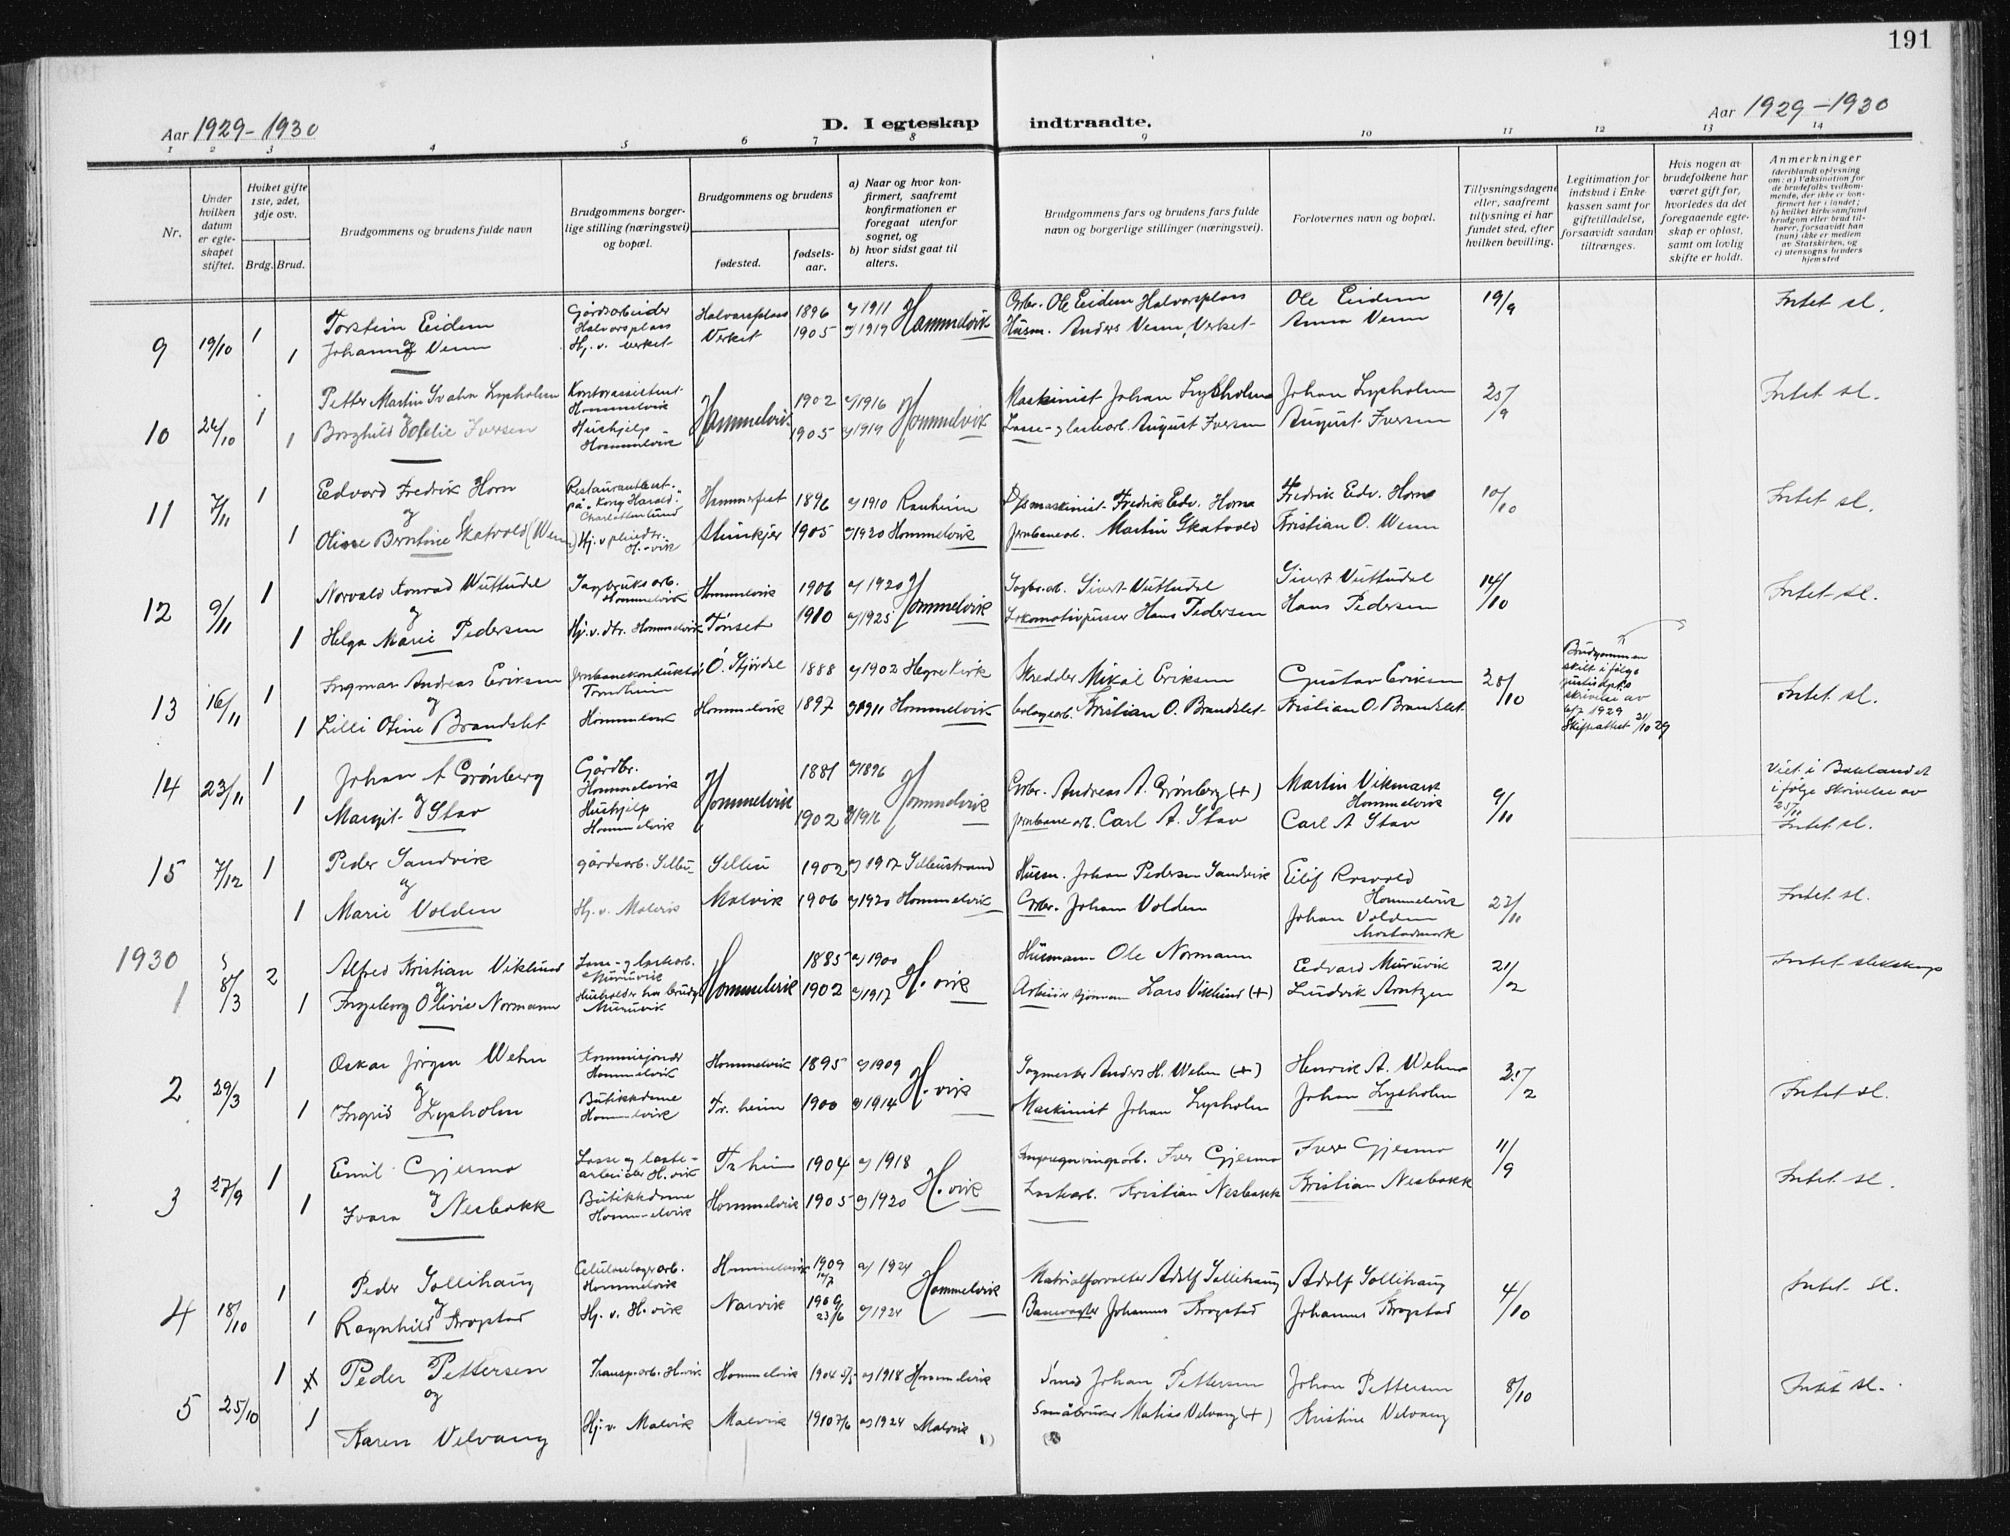 191
Aar 1929-1930
D. I egteskap indtraadte.
Aar 1929-1930
1 2 3 4 5 6 7 8 9 10 11 12 13 14
Nr.
Under hvilken datum er egteskapet stiftet.
Hvilket gifte 1ste, 2det, 3dje osv.
Brdg. Brud.
Brudgommens og brudens fulde navn
Brudgommens borgerlige stilling (næringsvei) og bopæl.
Brudgommens og brudens
fødested.
fødselsaar.
a) Naar og hvor konfirmert, saafremt konfirmationen er foregaat utenfor sognet, og
b) hvor sidst gaat til alters.
Brudgommens fars og brudens fars fulde navn og borgerlige stillinger (næringsvei).
Forlovernes navn og bopæl.
Tillysningsdagene eller, saafremt tillysning ei har fundet sted, efter hvilken bevilling.
Legitimation for indskud i Enkekassen samt for giftetilladelse, forsaavidt saadan tiltrænges.
Hvis nogen av brudefolkene har været gift før, hvorledes da det foregaaende egteskap er opløst, samt om lovlig skifte er holdt.
Anmerkninger (deriblandt oplysning om: a) Vaksination for de brudefolks vedkommende, der ikke er konfirmert her i landet; b) hvilket kirkesamfund brudgom eller brud tilhører, forsaavidt han (hun) ikke er medlem av Statskirken, og c) utensogns bruders hjemsted
9 19/10 1 Torstein Eidem Gårdsarbeider Halvorsplass Halvorsplass 1896 a) 1911 Hommelvik Grbr. Ole Eidem Halvorsplass Ole Eidem 19/9 Intet sl.
og
1 Johanna Venn Hj. v. Verket Verket 1905 a) 1919 Husm. Anders Venn, Verket Anna Venn
10 26/10 1 Petter Martin Svahn Lysholm Kontorassistent Hommelvik Hommelvik 1902 a) 1916 Hommelvik Maskinist Johan Lysholm Johan Lysholm 25/9 Intet sl.
1 Borghild Iversen Hushjelp Hommelvik 1905 a) 1919 Losse- og lastearb. August Iversen August Iversen
11 7/11 1 Edvard Fredrik Horn på "Kong Harald" Charlottenlund Hammerfest 1896 a) 1910 Ranheim Fredrik Edv. Horn Fredrik Edv. Horn 10/10 Intet sl.
og
1 Berntine Skatvold Hj. v. Hvik Stenkjer 1905 a) 1920 Hommelvik Jernbanearb. Martin Skatvold Kristian O. Wenn
12 9/11 1 Norvald Konrad Vuttudal Sagbruksarb. Hommelvik Hommelvik 1906 a) 1920 Hommelvik Sagbr.arb. Sivert Vuttudal Sivert Vuttudal 14/10 Intet sl.
og
1 Helga Marie Pedersen Hj. v. dtr. Hommelvik Tønset 1910 a) 1925 Lokomotivpusser Hans Pedersen Hans Pedersen
13 16/11 1 Ingmar Andreas Eriksen Jernbanekonduktør Trondheim Ø. Stjørdal 1888 a) 1902 Hegre Kirk Skredder Mikal Eriksen Gustav Eriksen 28/10 Brudgommen skilt i følge skrivelse av 1929 Skifteattest 21/10 29 Intet sl.
og
1 Lilli Otine Brandslet Hommelvik Hommelvik 1897 a) 1911 Hommelvik Kristian O. Brandslet Kristian O. Brandslet
14 23/11 1 Johan A Grönberg Gårdbr. Hommelvik Hommelvik 1881 a) 1896 Hommelvik Grbr. Andreas A. Grönberg (+) Martin Vikmark Hommelvik 9/11 Viet i Baklandet i følge skrivelse av 25/10
og
1 Margit Stav Hushjelp Hommelvik 1902 a) 1916 Jernbanearb. Carl A. Stav Carl A Stav Intet sl.
15 7/12 1 Peder Sandvik Gårdsarb. Selbu Selbu 1902 a) 1917 Selbustrand Husm. Johan Pedersen Sandvik Eilif Rosvold Hommelvik 22/11 Intet sl.
og
1 Marie Volden Hj. v. Malvik Malvik 1906 a) 1920 Hommelvik Grbr. Johan Volden Johan Volden Mostadmark
1930
1 8/3 2 Alfred Kristian Viklund Losse- og lastearb. Muruvik Hommelvik 1885 a) 1900 H.vik Husmann Ole Normann Edvard Muruvik 21/2 Intet slekskap
og
1 Ingeborg Olivie Normann Husholder hos brudg. Muruvik 1902 a) 1917 Lars Viklund (+) Ludvik Arntzen
2 29/3 1 Oskar Jörgen Wehn Kommisjonær Hommelvik Hommelvik 1895 a) 1909 H.vik Sagmester Anders H. Wehn (+) Henrik A. Wehn 25/2 Intet sl.
og
1 Ingrid Lysholm Butikkdame Hommelvik Tr.heim 1900 a) 1914 Maskinist Johan Lysholm Johan Lysholm
3 27/9 1 Emil Gjesmo Losse og lastearbeider H.vik Tr.heim 1904 a) 1918 H.vik Impregneringsarb. Iver Gjesmo Iver Gjesmo 11/9 Intet sl.
og
1 Ivara Nesbakk Butikkdame Hommelvik Hommelvik 1905 a) 1920 Lastearb. Kristian Nesbakk Kristian Nesbakk
4 18/10 1 Peder Sollihaug Celuloselagerarb. Hommelvik Hommelvik 1909 a) 1924 Hommelvik Matrialforvalter Adolf Sollihaug Adolf Sollihaug 4/10 Intet sl.
og
1 Ragnhild Krogstad Hj. v. H.vik Narvik 23/6 a) 1924 Banevogter Johannes Krogstad Johannes Krogstad
5 25/10 1 Peder Pettersen Transp.arb. H.vik Hommelvik 1904 a) 1918 Hommelvik Smed Johan Pettersen Johan Pettersen 8/10 Intet sl.
og
1 Karen Velvang Hj. v. Malvik Malvik 1910 7/6 a) 1924 Malvik Småbruker Matias Velvang (+) Kristine Velvang